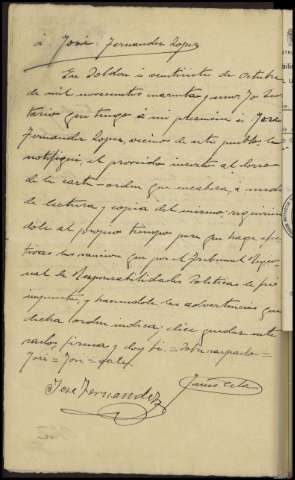 á José Fernandez Lopez
En Doldon a veintisiete de Octubre
de mil novecientos cuarenta y uno, Yo Secre
tario que tengo a mi presencia a Jose
Fernandez Lopez, vecino de este pueblo, le
notifiqué, el proveido inserto al dorso
de la carta-orden que encabeza, a medio
de lectura y copia del mismo, requirien
dole al propio tiempo para que haga efec
tivas la sancion que por el Tribunal Regio
nal de Responsabilidades Politicas le fué
impuesta, y haciendole las advertencias que
dicha orden indica; dice quedar ente
rado, firma y doy fé. = Sobreraspado =
José = Jose = vale.
Jose Fernandez